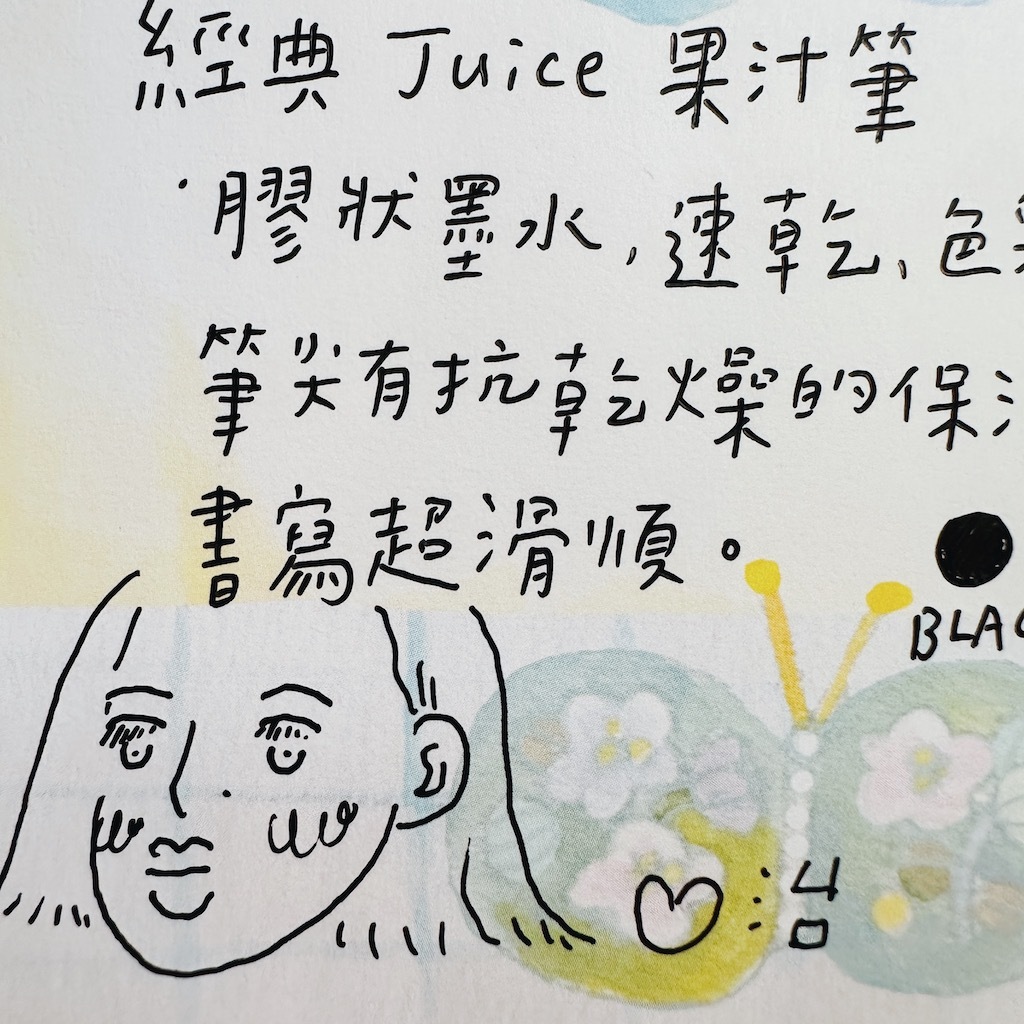 經典 Juice 果汁筆
·膠狀墨水,速乾、色彩
筆尖有抗乾燥的保
書寫超滑順。
BLAC
♡治